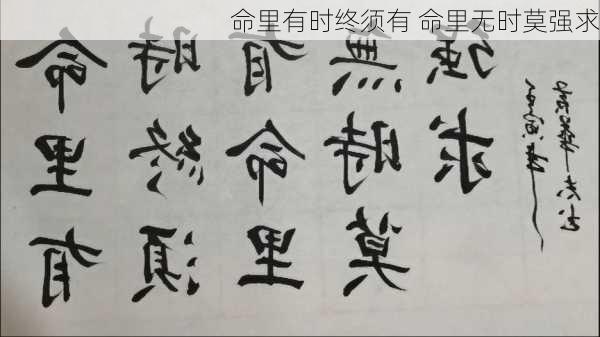 命里有时终须有 命里无时莫强求
命里有
時終須
有命里
無時莫
强求